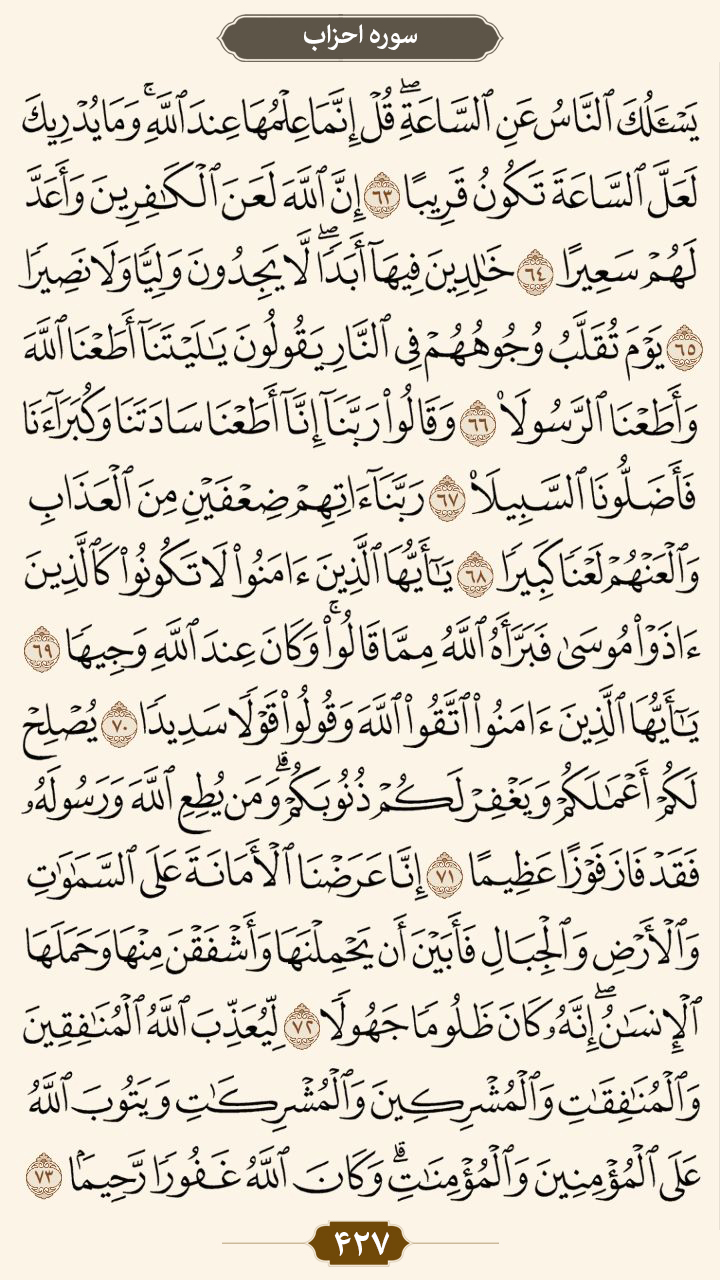 سوره احزاب
يَسْـَٔلُكَ ٱلنَّاسُ عَنِ ٱلسَّاعَةِۖ قُلْ إِنَّمَا عِلْمُهَا عِندَ ٱللَّهِۚ وَمَا يُدْرِيكَ
لَعَلَّ ٱلسَّاعَةَ تَكُونُ قَرِيبًا ٦٣ إِنَّ ٱللَّهَ لَعَنَ ٱلْكَٰفِرِينَ وَأَعَدَّ
لَهُمْ سَعِيرًا ٦٤ خَٰلِدِينَ فِيهَآ أَبَدًاۖ لَّا يَجِدُونَ وَلِيًّا وَلَا نَصِيرًا
٦٥ يَوْمَ تُقَلَّبُ وُجُوهُهُمْ فِى ٱلنَّارِ يَقُولُونَ يَٰلَيْتَنَآ أَطَعْنَا ٱللَّهَ
وَأَطَعْنَا ٱلرَّسُولَا۠ ٦٦ وَقَالُوا۟ رَبَّنَآ إِنَّآ أَطَعْنَا سَادَتَنَا وَكُبَرَآءَنَا
فَأَضَلُّونَا ٱلسَّبِيلَا۠ ٦٧ رَبَّنَآ ءَاتِهِمْ ضِعْفَيْنِ مِنَ ٱلْعَذَابِ
وَٱلْعَنْهُمْ لَعْنًا كَبِيرًا ٦٨ يَٰٓأَيُّهَا ٱلَّذِينَ ءَامَنُوا۟ لَا تَكُونُوا۟ كَٱلَّذِينَ
ءَاذَوْا۟ مُوسَىٰ فَبَرَّأَهُ ٱللَّهُ مِمَّا قَالُوا۟ۚ وَكَانَ عِندَ ٱللَّهِ وَجِيهًا ٦٩
يَٰٓأَيُّهَا ٱلَّذِينَ ءَامَنُوا۟ ٱتَّقُوا۟ ٱللَّهَ وَقُولُوا۟ قَوْلًا سَدِيدًا ٧٠ يُصْلِحْ
لَكُمْ أَعْمَٰلَكُمْ وَيَغْفِرْ لَكُمْ ذُنُوبَكُمْۗ وَمَن يُطِعِ ٱللَّهَ وَرَسُولَهُۥ
فَقَدْ فَازَ فَوْزًا عَظِيمًا ٧١ إِنَّا عَرَضْنَا ٱلْأَمَانَةَ عَلَى ٱلسَّمَٰوَٰتِ
وَٱلْأَرْضِ وَٱلْجِبَالِ فَأَبَيْنَ أَن يَحْمِلْنَهَا وَأَشْفَقْنَ مِنْهَا وَحَمَلَهَا
ٱلْإِنسَٰنُۖ إِنَّهُۥ كَانَ ظَلُومًا جَهُولًا ٧٢ لِّيُعَذِّبَ ٱللَّهُ ٱلْمُنَٰفِقِينَ
وَٱلْمُنَٰفِقَٰتِ وَٱلْمُشْرِكِينَ وَٱلْمُشْرِكَٰتِ وَيَتُوبَ ٱللَّهُ
عَلَى ٱلْمُؤْمِنِينَ وَٱلْمُؤْمِنَٰتِۗ وَكَانَ ٱللَّهُ غَفُورًا رَّحِيمًۢا ٧٣
۴۲۷